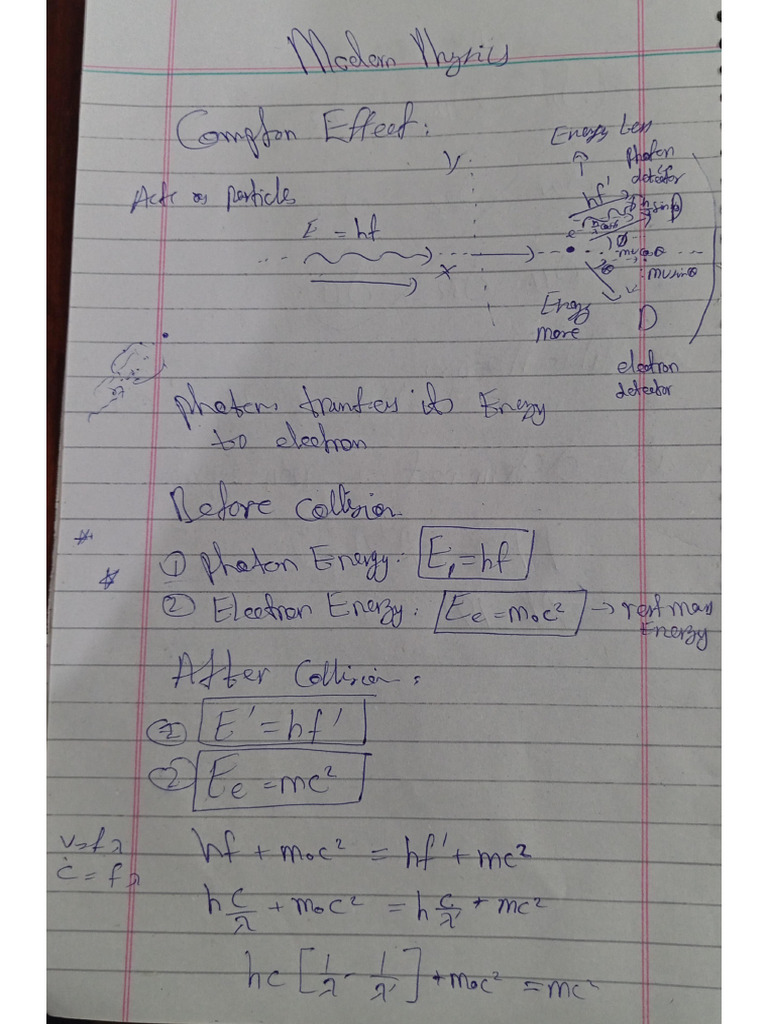 Modern Physics
Compton Effect:
Acts as particles
E = hf
y
x
Energy less
photon
detector
hf'
e
φ
θ
mvcosθ
mvsinθ
v
Energy
more
D
electron
detector
photon transfers its Energy
to electron
Before Collision
① photon Energy: E₁=hf
② Electron Energy: Ee=m₀c² → rest mass
Energy
After Collision:
E'=hf'
② Ee=mc²
v=fλ
c=fλ
hf+m₀c² = hf'+mc²
h c/λ + m₀c² = h c/λ' + mc²
hc [1/λ - 1/λ'] + m₀c² = mc²